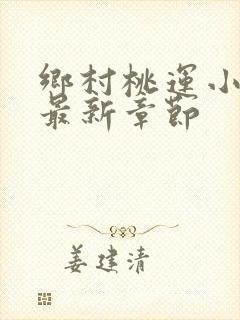 鄉村桃運小
最新章節
姜建清